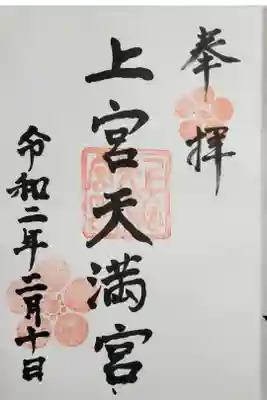 奉拝
上宮天満宮
令和二年二月十日